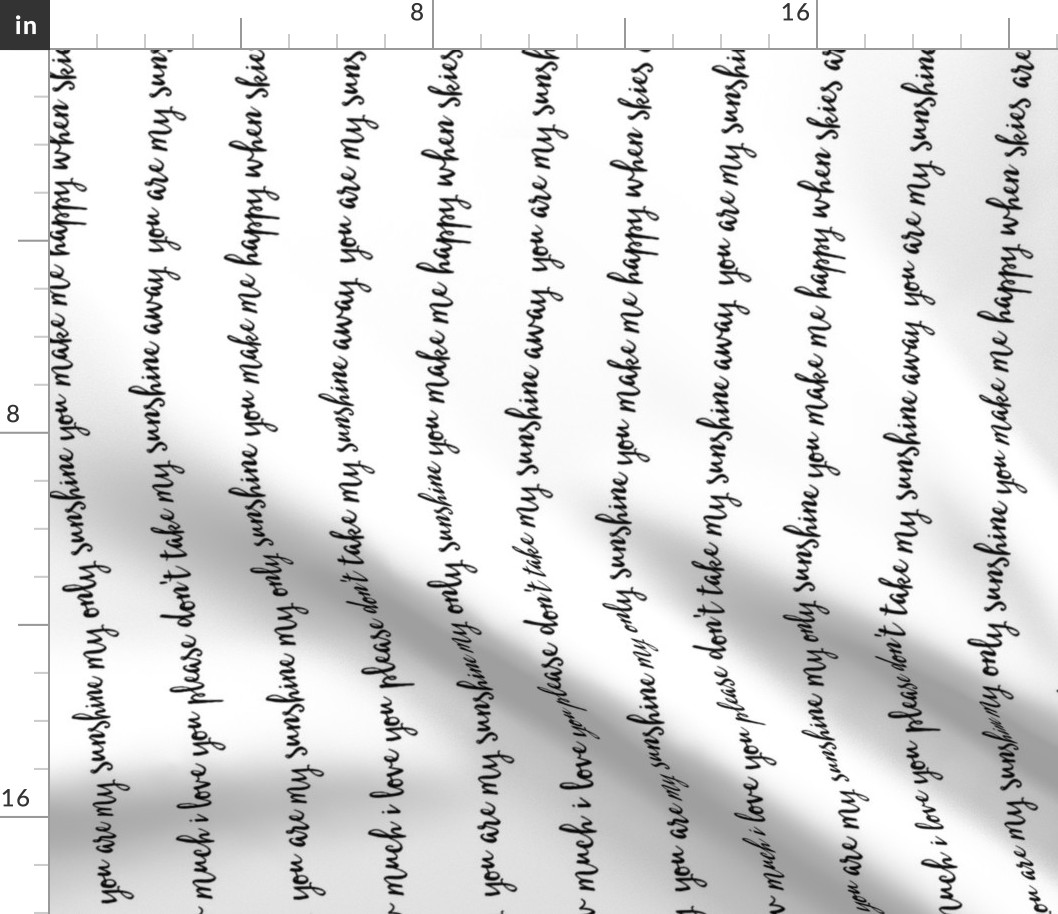 in
8
16
8
16
you are my sunshine my only sunshine you make me happy when skie
much i love you please don't take my sunshine away you are my suns
you are my sunshine my only sunshine you make me happy when skie
much i love you please don't take my sunshine away you are my suns
you are my sunshine my only sunshine you make me happy when skies
w much i love you please don't take my sunshine away you are my sunsh
you are my sunshine my only sunshine you make me happy when skies
w much i love you please don't take my sunshine away you are my sunshi
you are my sunshine my only sunshine you make me happy when skies ar
much i love you please don't take my sunshine away you are my sunshine
ou are my sunshine my only sunshine you make me happy when skies are